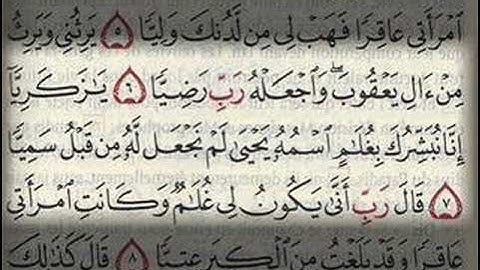 ٱمْرَأَتِى عَاقِرًا فَهَبْ لِى مِن لَّدُنكَ وَلِيًّا ٥ يَرِثُنِى وَيَرِثُ
مِنْ ءَالِ يَعْقُوبَ ۖ وَٱجْعَلْهُ رَبِّ رَضِيًّا ٦ يَٰزَكَرِيَّآ
إِنَّا نُبَشِّرُكَ بِغُلَٰمٍ ٱسْمُهُۥ يَحْيَىٰ لَمْ نَجْعَل لَّهُۥ مِن قَبْلُ سَمِيًّا
٧ قَالَ رَبِّ أَنَّىٰ يَكُونُ لِى غُلَٰمٌ وَكَانَتِ ٱمْرَأَتِى
عَاقِرًا وَقَدْ بَلَغْتُ مِنَ ٱلْكِبَرِ عِتِيًّا ٨ قَالَ كَذَٰلِكَ